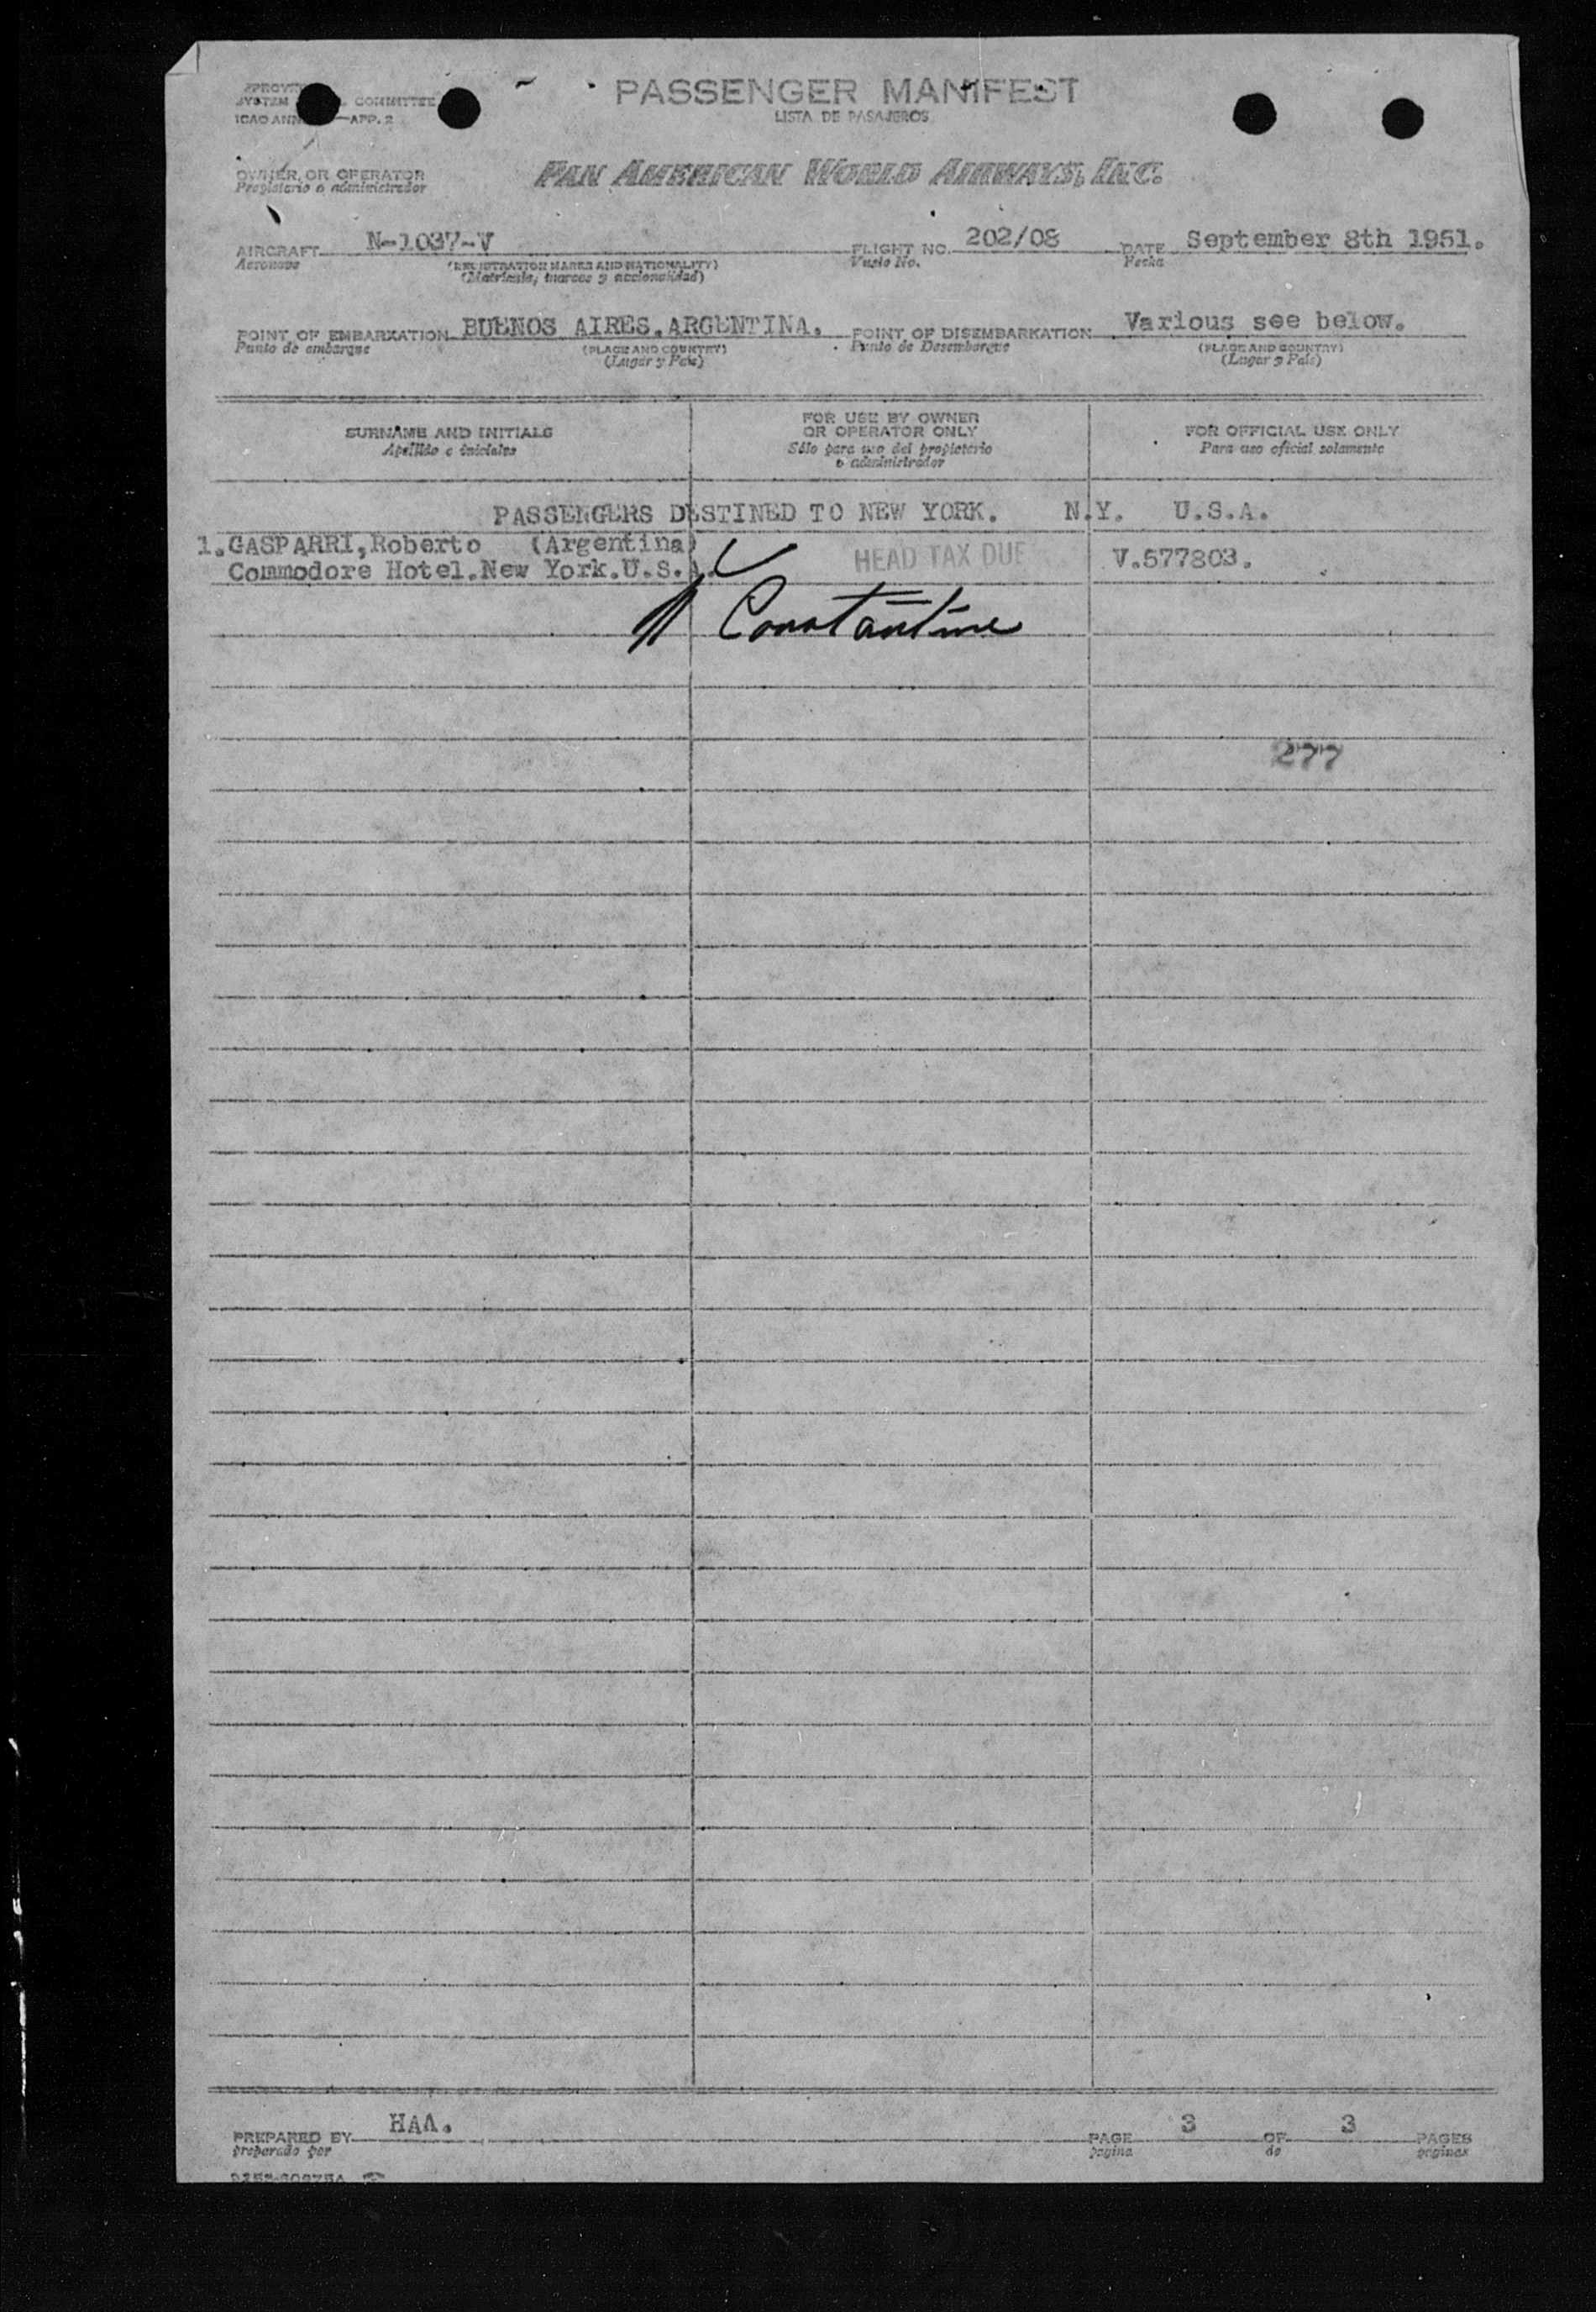 PASSENGER MANIFEST
LISTA DE PASAJEROS
SYSTEM COMMITTEE
ICAO ANN APP. 2
OWNER, OR OPERATOR
Propietario o administrador
PAN AMERICAN WORLD AIRWAYS, INC.
AIRCRAFT N-1037-V FLIGHT NO. 202/08 DATE September 8th 1951.
Aeronave (REGISTRATION MARKS AND NATIONALITY) Vuelo No. Fecha
(Matrícula, marcas y nacionalidad)
POINT OF EMBARKATION BUENOS AIRES.ARGENTINA. POINT OF DISEMBARKATION Various see below.
Punto de embarque (PLACE AND COUNTRY) Punto de Desembarque (PLACE AND COUNTRY)
(Lugar y País) (Lugar y País)
SURNAME AND INITIALS
Apellido e iniciales
FOR USE BY OWNER
OR OPERATOR ONLY
Sólo para uso del propietario
o administrador
FOR OFFICIAL USE ONLY
Para uso oficial solamente
PASSENGERS DESTINED TO NEW YORK. N.Y. U.S.A.
1.GASPARRI,Roberto (Argentina)
Commodore Hotel.New York.U.S.A.
HEAD TAX DUE
V.577803.
Constantine
277
PREPARED BY HAA. PAGE 3 OF 3 PAGES
preparado por pagina de paginas